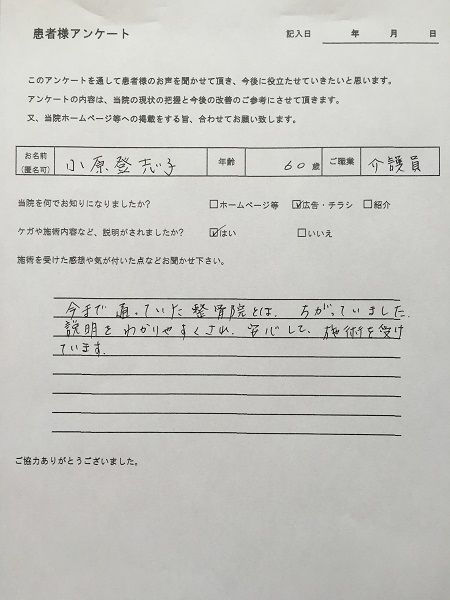 患者様アンケート
記入日 年 月 日
このアンケートを通して患者様のお声を聞かせて頂き、今後に役立たせていきたいと思います。
アンケートの内容は、当院の現状の把握と今後の改善のご参考にさせて頂きます。
又、当院ホームページ等への掲載をする旨、合わせてお願い致します。
お名前(匿名可) 小原登志子 年齢 60歳 ご職業 介護員
当院を何でお知りになりましたか? □ホームページ等 ☑広告・チラシ □紹介
ケガや施術内容など、説明がされましたか? ☑はい □いいえ
施術を受けた感想や気が付いた点などお聞かせ下さい。
今まで通っていた整骨院とは、ちがっていました。
説明をわかりやすくされ、安心して、施術を受け
ています。
ご協力ありがとうございました。